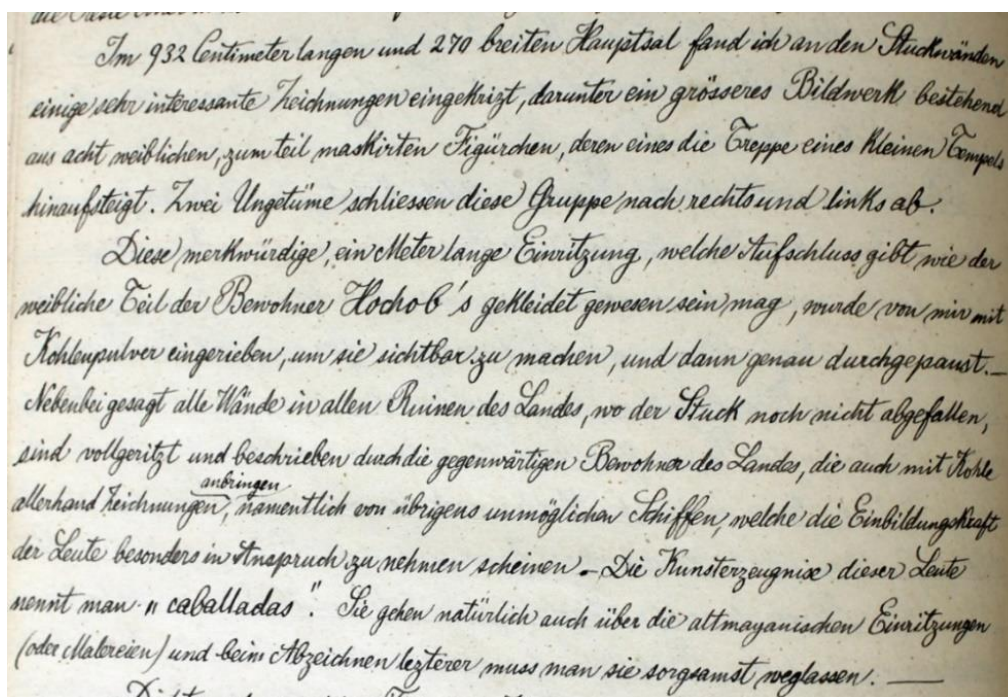 Im 932 Centimeter langen und 270 breiten Hauptsal fand ich an den Stuckwänden
einige sehr interessante Zeichnungen eingekrizt, darunter ein grösseres Bildwerk bestehend
aus acht weiblichen, zum teil maskirten Figürchen, deren eines die Treppe eines kleinen Tempels
hinaufsteigt. Zwei Ungetüme schliessen diese Gruppe nach rechts und links ab.
Diese merkwürdige, ein Meter lange Einritzung, welche Aufschluss gibt wie der
weibliche Teil der Bewohner Hochob's gekleidet gewesen sein mag, wurde von mir mit
Kohlenpulver eingerieben, um sie sichtbar zu machen, und dann genau durchgepaust. —
Nebenbei gesagt alle Wände in allen Ruinen des Landes, wo der Stuck noch nicht abgefallen,
sind vollgeritzt und beschrieben durch die gegenwärtigen Bewohner des Landes, die auch mit Kohle
anbringen
allerhand Zeichnungen, namentlich von übrigens unmöglichen Schiffen, welche die Einbildungskraft
der Leute besonders in Anspruch zu nehmen scheinen. — Die Kunsterzeugnise dieser Leute
nennt man "caballadas". Sie gehen natürlich auch über die altmayanischen Einritzungen
(oder Malereien) und beim Abzeichnen lezterer muss man sie sorgsamst weglassen. —